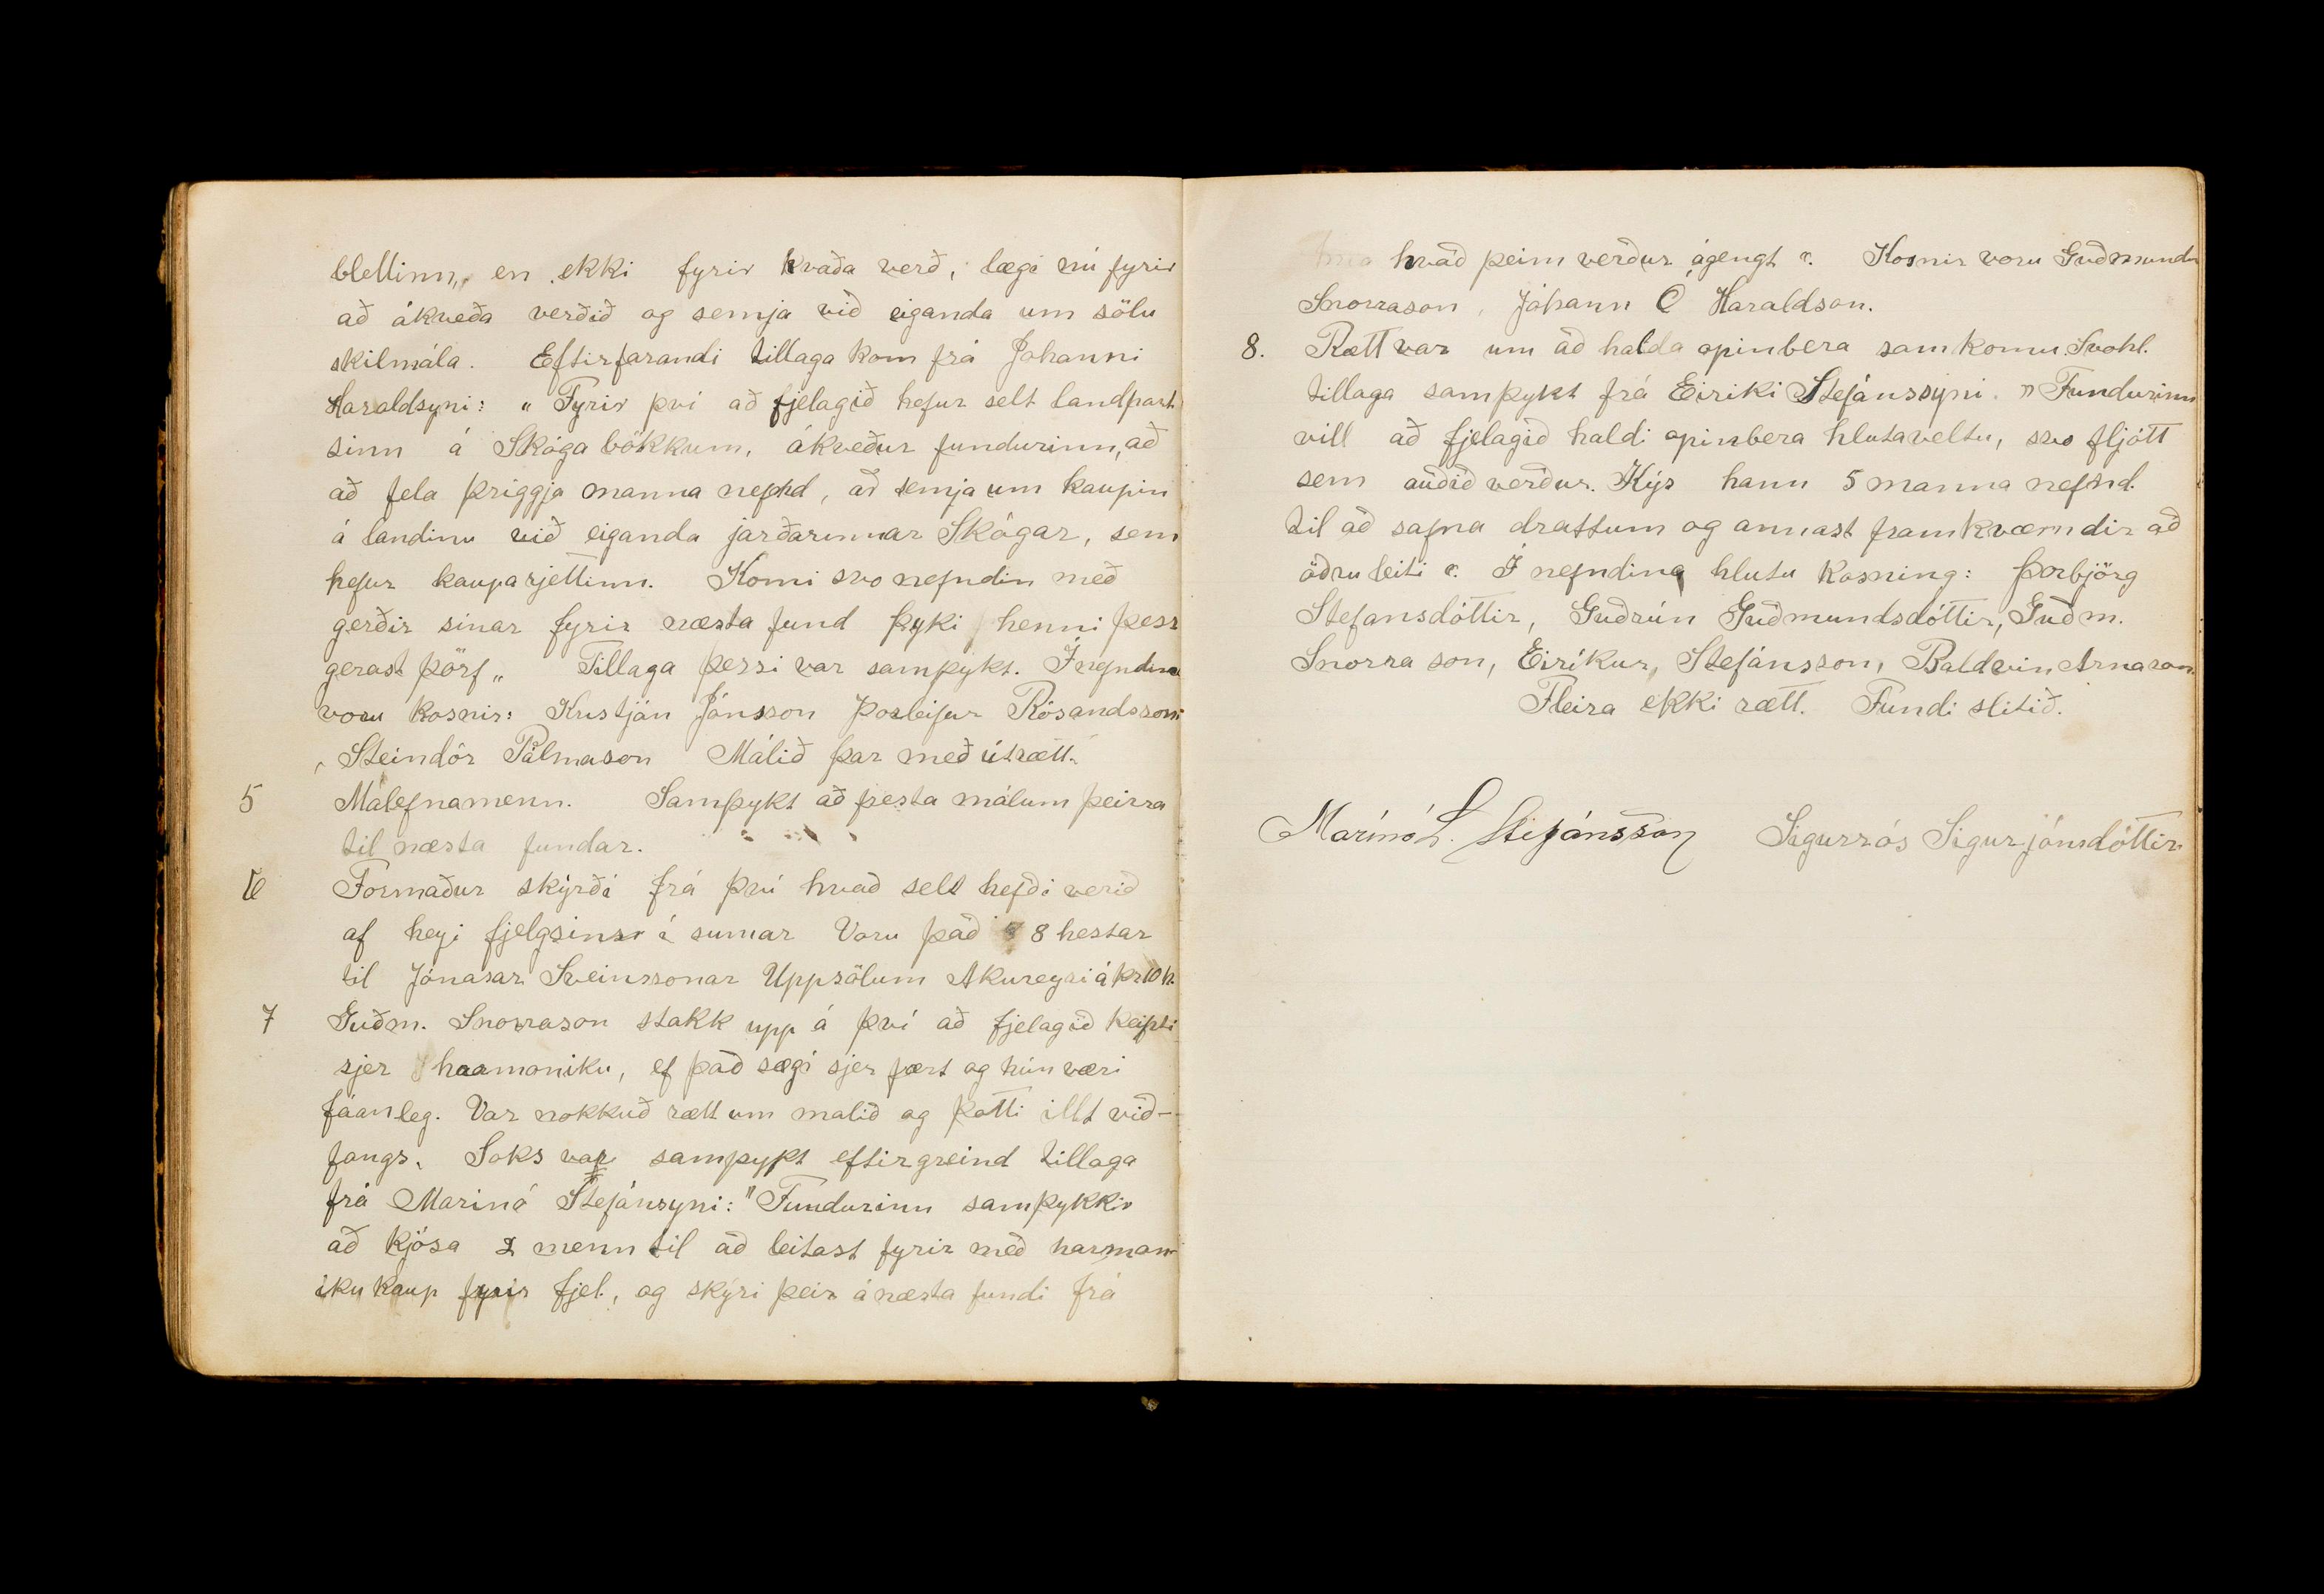 blettinn, en ekki fyrir hvaða verð, lægi nú fyrir
að ákveða verðið og semja við eiganda um sölu
skilmála. Eftirfarandi tillaga kom frá Jóhanni
Haraldsyni: „Fyrir því að fjelagið hefur selt landpart
sinn á Skógabökkum, ákveður fundurinn, að
að fela þriggja manna nefnd, að semja um kaupin
á landinu við eiganda jarðarinnar Skógar, sem
hefur kauparjettinn. Komi svo nefndin með
gerðir sinar fyrir næsta fund þyki henni þess
gerast þörf„ Tillaga þessi var samþykt. Í nefndina
voru kosnir: Kristján Jónsson Þorleifur Rósandsson
, Steindór Pálmason Málið þar með útrætt.
5 Málefnamenn. Samþykt að fresta málum þeirra
til næsta fundar.
6 Formaður skýrði frá því hvað selt hefði verið
af heyi fjelgsins í sumar Voru það 8 hestar
til Jónasar Sveinssonar Uppsölum Akureyri á kr 10 h.
7 Guðm. Snorrason stakk upp á því að fjelagið keipti
sjer harmoniku, ef það sægi sjer fært og hún væri
fáanleg. Var nokkuð rætt um malið og þotti illt við-
fangs. Loks var samþykt eftirgreind tillaga
frá Marinó Stefánsyni: "Fundurinn samþykkir
að kjósa 2 menn til að leitast fyrir með harmon-
iku kaup fyrir fjel., og skýri þeir á næsta fundi frá
hvað þeim verður ágengt ". Kosnir voru Guðmundur
Snorrason, Jóhann Ó Haraldson.
8. Rætt var um að halda opinbera samkomu. Svohl.
tillaga samþykt frá Eiriki Stefánssyni. "Fundurinn
vill að fjelagið haldi opinbera hlutaveltu, svo fljótt
sem auðið verður. Kýs hann 5 manna nefnd.
til að safna drattum og annast framkvæmdir að
öðru leiti ". Í nefndina hlutu kosning: Þorbjörg
Stefansdóttir, Guðrún Guðmundsdóttir, Guðm.
Snorrason, Eiríkur, Stefánsson, Baldvin Arnason.
Fleira ekki rætt. Fundi slitið.
Marínó L. Stefánsson Sigurrós Sigurjónsdóttir